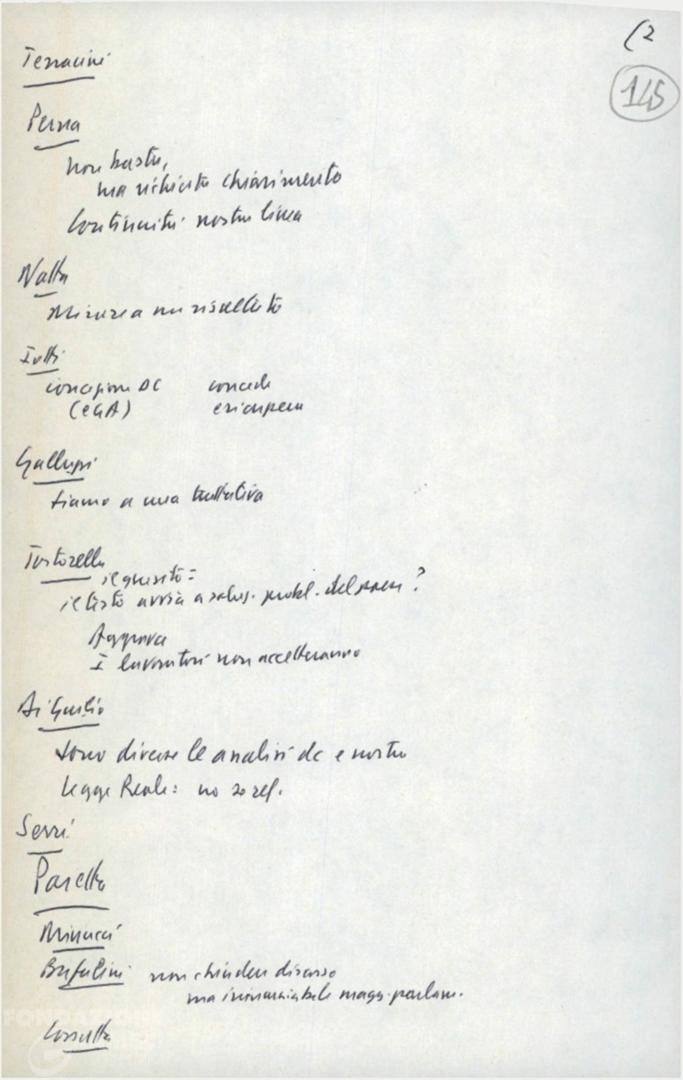 (2
145
Terracini
Perna
non basta,
ma richiesta chiarimento
Continuità nostra linea
Natta
Mirare a un risultato
Iotti
concezione DC concede
(EGA) e ricupera
Galluppi
siamo a una trattativa
Tortorella
il quesito =
il testo avvia a soluz. probl. del paese ?
Approva
I lavoratori non accetteranno
Di Giulio
sono diverse le analisi dc e nostra
Legge Reale: no s ref.
Serri
Pasetto
Minucci
Bufalini non chiudere discorso
ma irrinunciabile magg. parlam.
Cossutta
FONDAZIONE